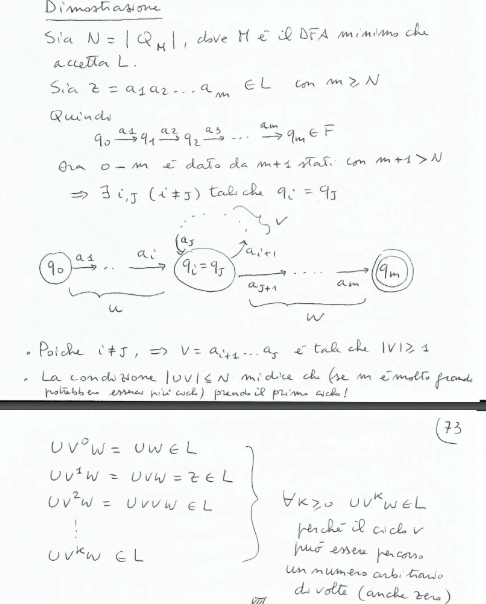 Dimostrazione
Sia N = |Q_M|, dove M è il DFA minimo che
accetta L.
Sia z = a1 a2 ... am ∈ L con m ≥ N
Quindi
q0 →a1 q1 →a2 q2 →a3 ... →am qm ∈ F
Ora 0 – m è dato da m+1 stati con m+1 > N
⇒ ∃ i,J (i ≠ J) tali che qi = qJ
V
aJ ai+1
q0 a1 .. ai qi = qJ aJ+1 .... am qm
u w
• Poiche i ≠ J, ⇒ V = ai+1 ... aJ è tale che |V| ≥ 1
• La condizione |UV| ≤ N mi dice che (se m è molto grande
potrebbero esserci più cicli) prendo il primo ciclo!
73
UV⁰W = UW ∈ L
UV¹W = UVW = Z ∈ L
UV²W = UVVW ∈ L
⋮
UVᵏW ∈ L
∀K ≥ 0 UVᵏW ∈ L
perché il ciclo v
può essere percorso
un numero arbitrario
di volte (anche zero)